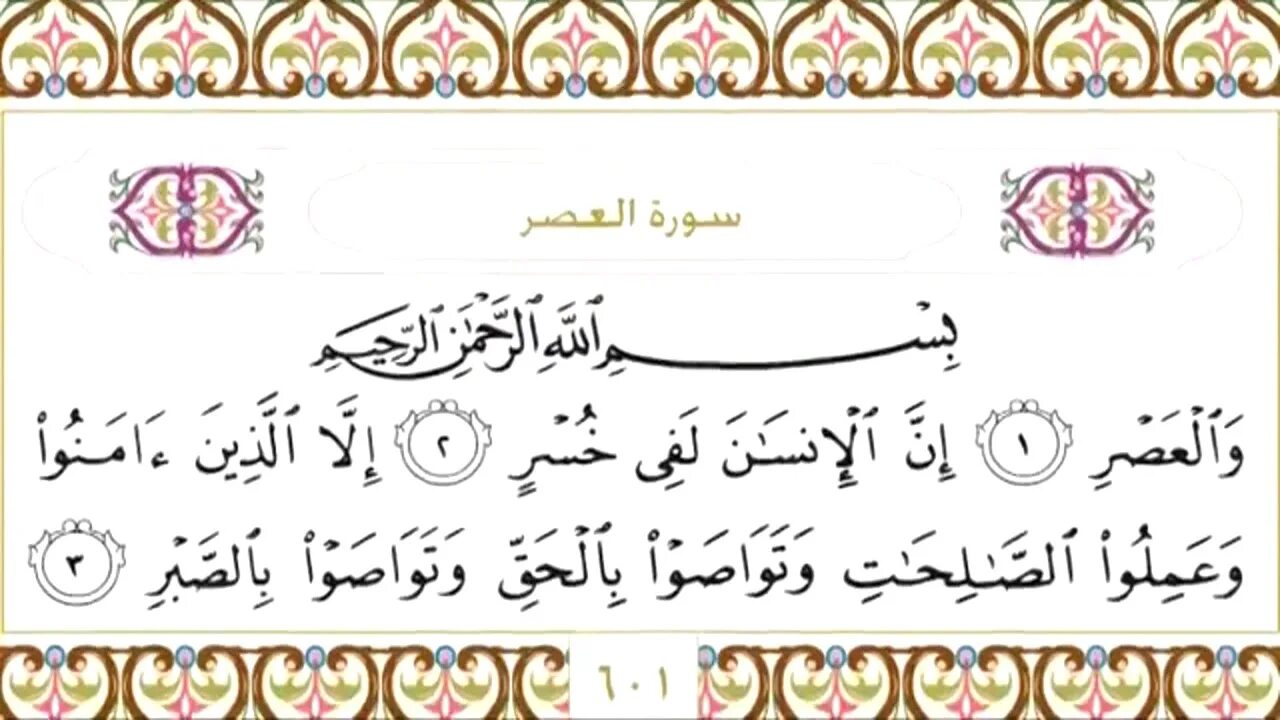 سورة العصر
بِسْمِ ٱللَّهِ ٱلرَّحْمَٰنِ ٱلرَّحِيمِ
وَٱلْعَصْرِ ١ إِنَّ ٱلْإِنسَٰنَ لَفِى خُسْرٍ ٢ إِلَّا ٱلَّذِينَ ءَامَنُوا۟
وَعَمِلُوا۟ ٱلصَّٰلِحَٰتِ وَتَوَاصَوْا۟ بِٱلْحَقِّ وَتَوَاصَوْا۟ بِٱلصَّبْرِ ٣
٦٠١